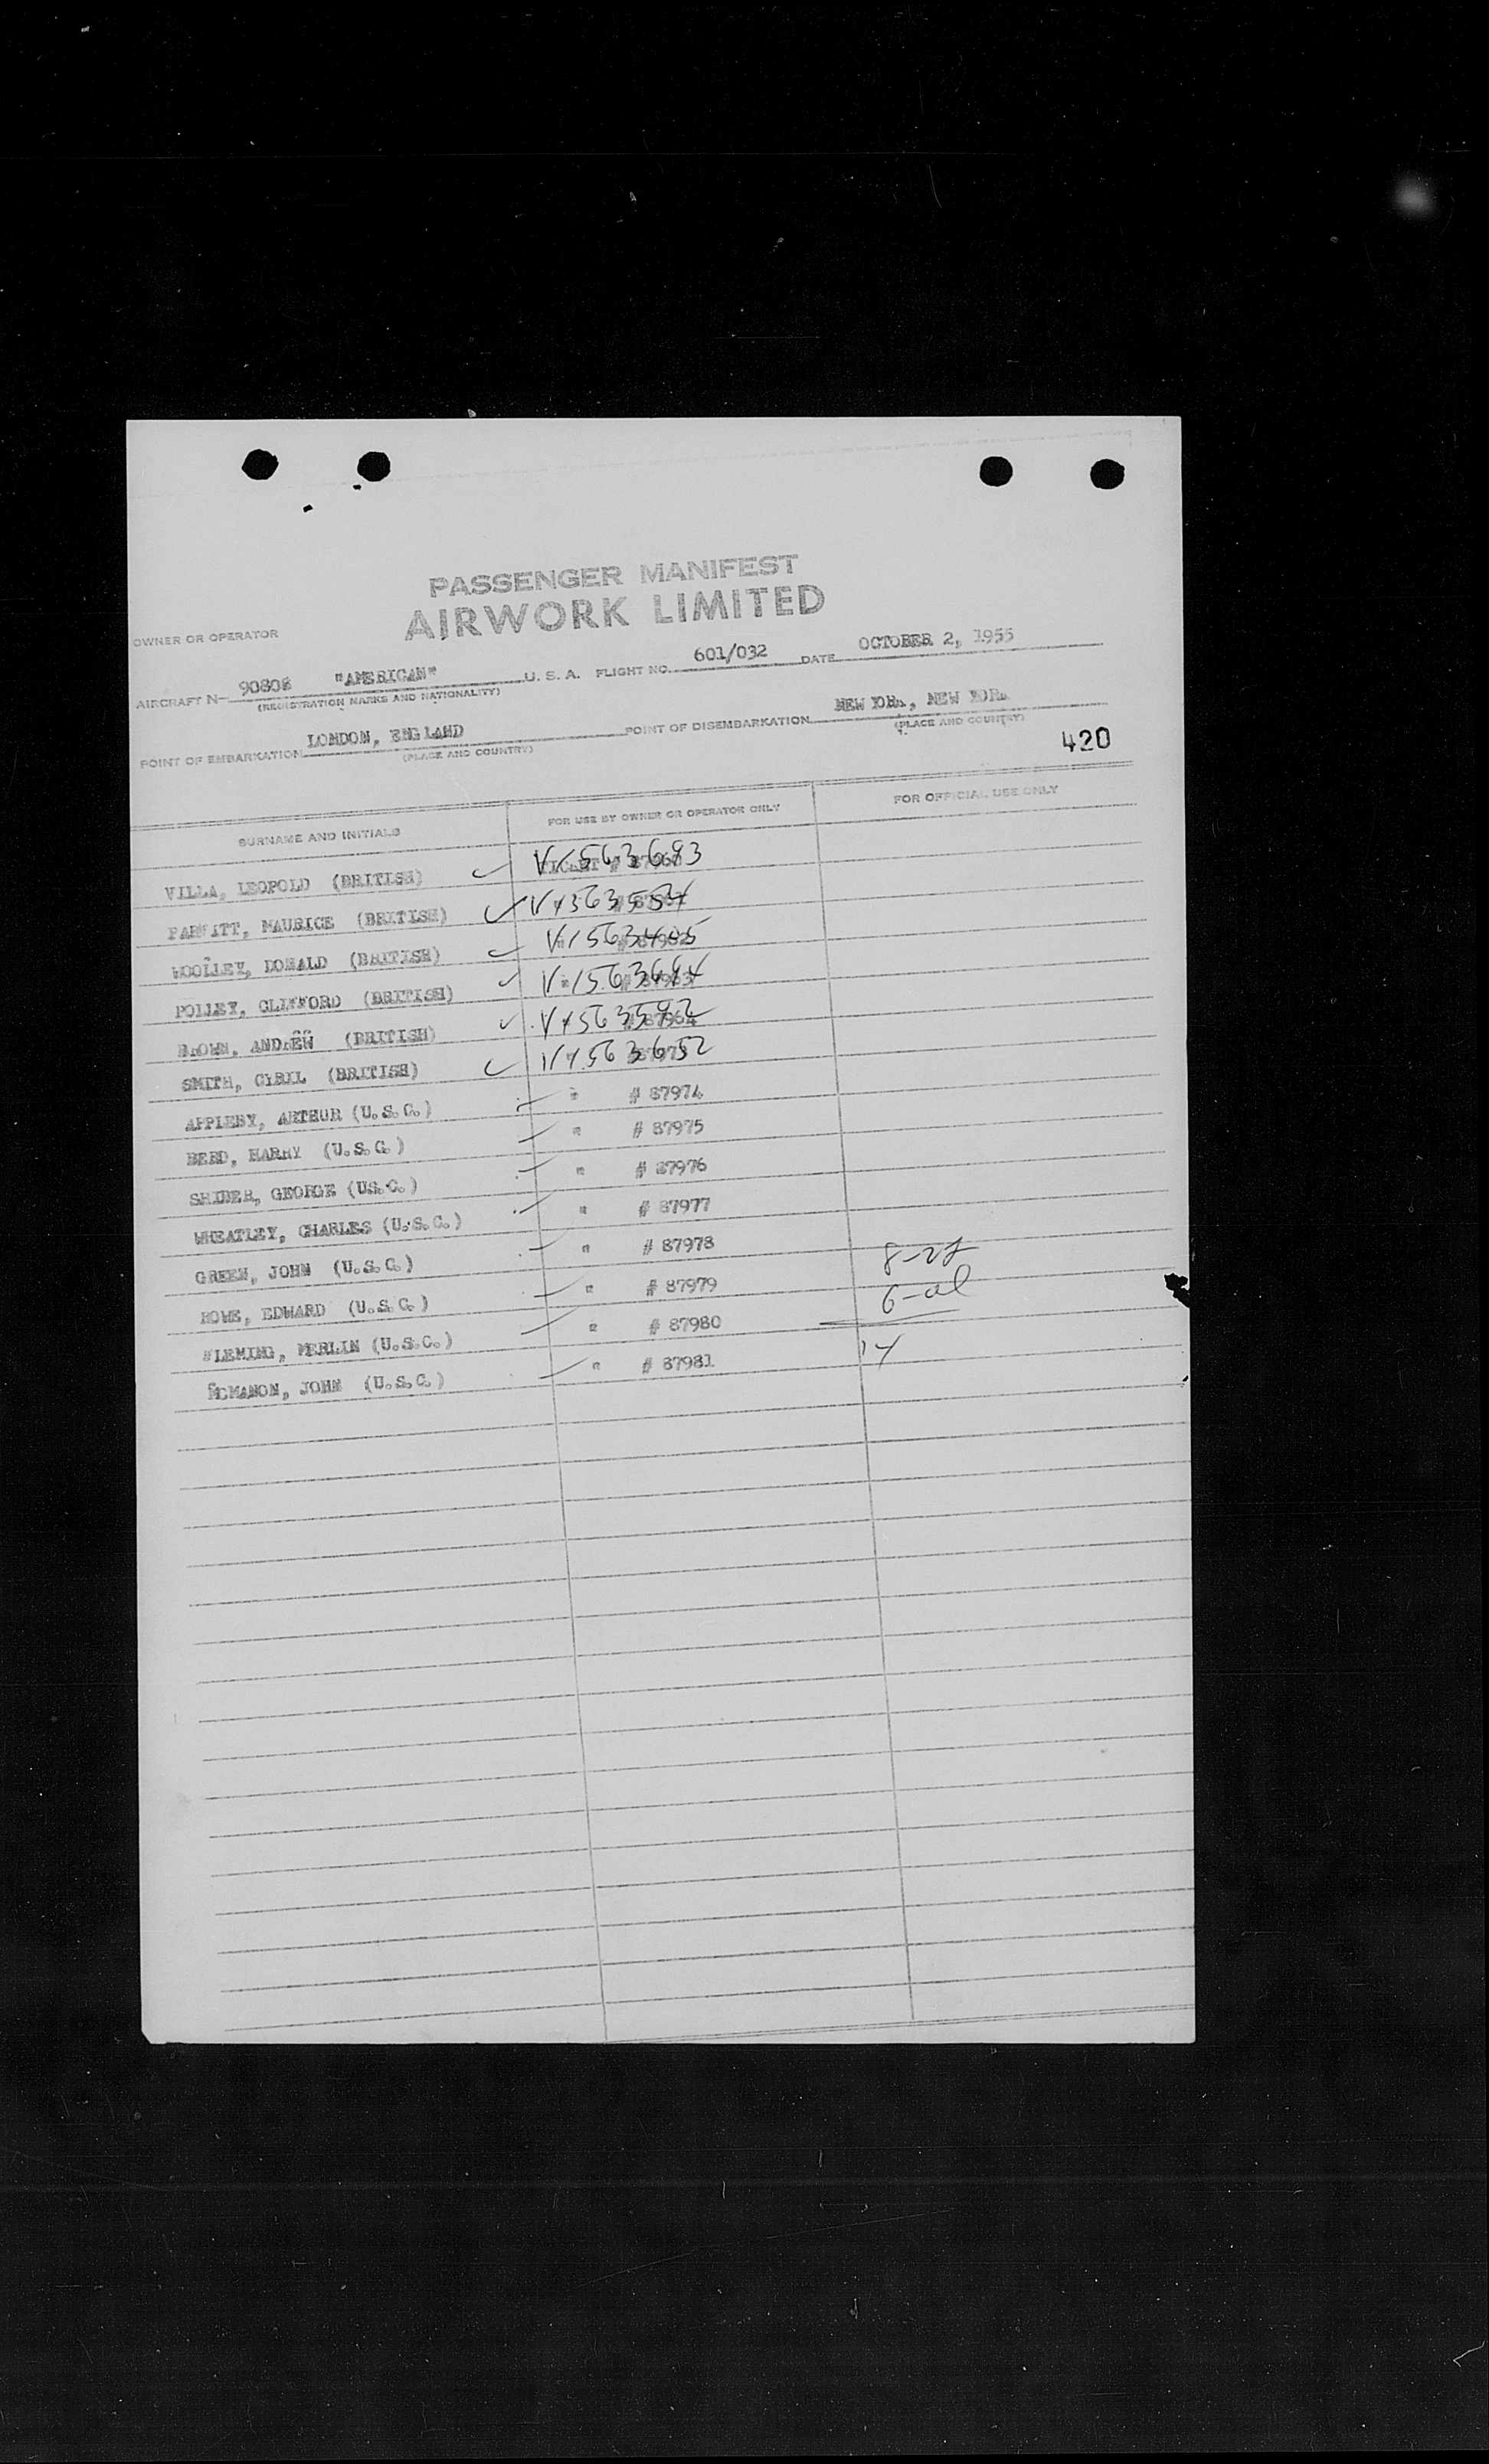 PASSENGER MANIFEST
AIRWORK LIMITED
OWNER OR OPERATOR
AIRCRAFT N- 90808 "AMERICAN" U. S. A. FLIGHT NO. 601/032 DATE OCTOBER 2, 1955
(REGISTRATION MARKS AND NATIONALITY)
POINT OF EMBARKATION LONDON, ENGLAND POINT OF DISEMBARKATION NEW YORK, NEW YORK
(PLACE AND COUNTRY) (PLACE AND COUNTRY)
420
SURNAME AND INITIALS FOR USE BY OWNER OR OPERATOR ONLY FOR OFFICIAL USE ONLY
VILLA, LEOPOLD (BRITISH) V1563693
PARFITT, MAURICE (BRITISH)
WOOLLEY, DONALD (BRITISH)
POLLEY, CLIFFORD (BRITISH)
BROWN, ANDREW (BRITISH)
SMITH, CYRIL (BRITISH)
APPLEBY, ARTHUR (U.S.C.) " # 87974
BERD, HARRY (U.S.C.) " # 87975
SHIBER, GEORGE (US.C.) " # 87976
WHEATLEY, CHARLES (U.S.C.) " # 87977
GREEN, JOHN (U.S.C.) " # 87978 8-
ROWE, EDWARD (U.S.C.) " # 87979 6-al
FLEMING, MERLIN (U.S.C.) " # 87980
MCMANON, JOHN (U.S.C.) " # 87981 14